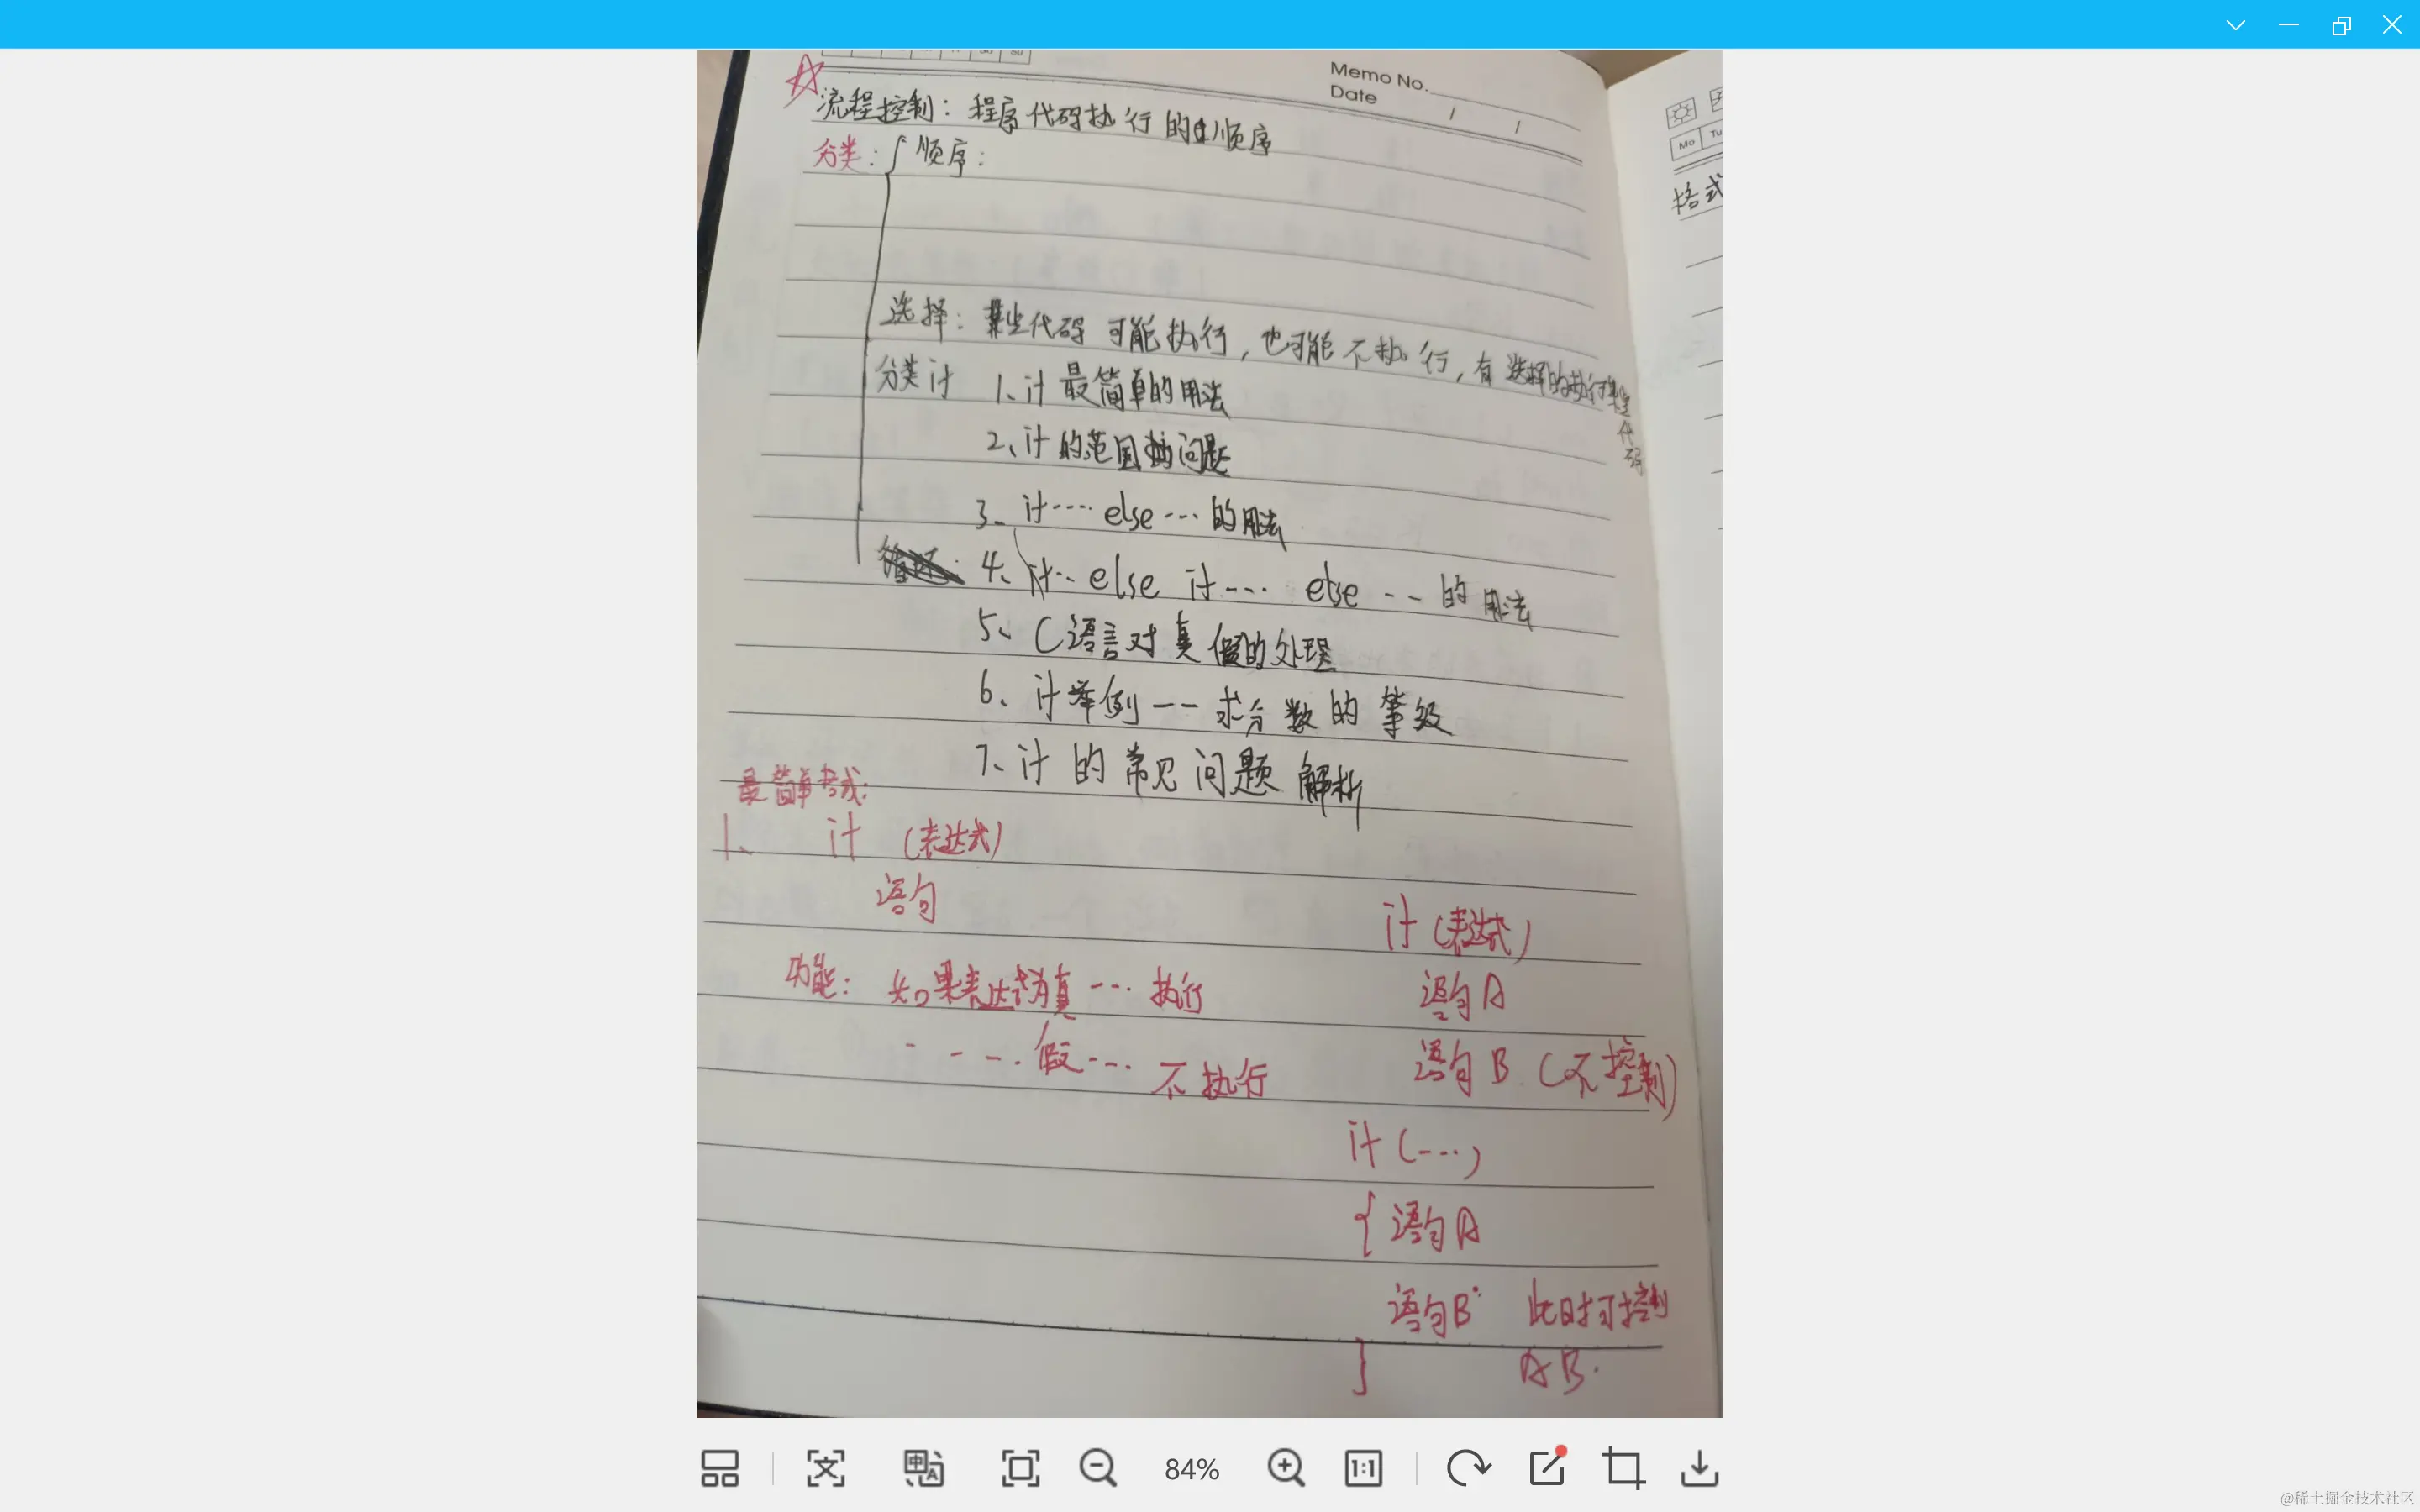 Memo No.
Date / /
流程控制：程序代码执行的顺序
分类：{ 顺序：
Mo Tu
格式
选择：某些代码可能执行，也可能不执行，有选择的执行某些代码
分类 if 1、if 最简单的用法
2、if 的范围问题
3、if···· else ··· 的用法
4、if·· else if ···· else ·· 的用法
5、C语言对真假的处理
6、if 举例 —— 求分数的等级
7、if 的常见问题解析
最简单格式：
1、 if (表达式)
语句
功能：如果表达式为真 ··· 执行
- - -· 假 ··· 不执行
if (表达式)
语句A
语句B (不控制)
if (···)
{ 语句A
语句B 此时可控制
} A B.
84%
1:1
@稀土掘金技术社区